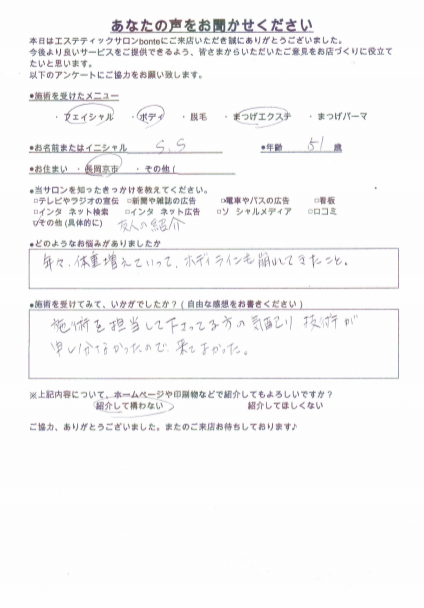 あなたの声をお聞かせください
本日はエステティックサロンbonteにご来店いただき誠にありがとうございました。
今後より良いサービスをご提供できるよう、皆さまからいただいたご意見をお店づくりに役立て
たいと思います。
以下のアンケートにご協力をお願い致します。
●施術を受けたメニュー
・フェイシャル ・ボディ ・脱毛 ・まつげエクステ ・まつげパーマ
●お名前またはイニシャル S.S ●年齢 51 歳
●お住まい ・長岡京市 ・その他(
●当サロンを知ったきっかけを教えてください。
□テレビやラジオの宣伝 □新聞や雑誌の広告 □電車やバスの広告 □看板
□インターネット検索 □インターネット広告 □ソーシャルメディア □口コミ
☑その他(具体的に) 友人の紹介
●どのようなお悩みがありましたか
年々、体重増えていって、ボディラインも崩れてきたこと。
●施術を受けてみて、いかがでしたか?(自由な感想をお書きください)
施術を担当して下さってる方の気配り 技術が
申し分なかったので、来てよかった。
※上記内容について、ホームページや印刷物などで紹介してもよろしいですか?
紹介して構わない 紹介してほしくない
ご協力、ありがとうございました。またのご来店お待ちしております♪